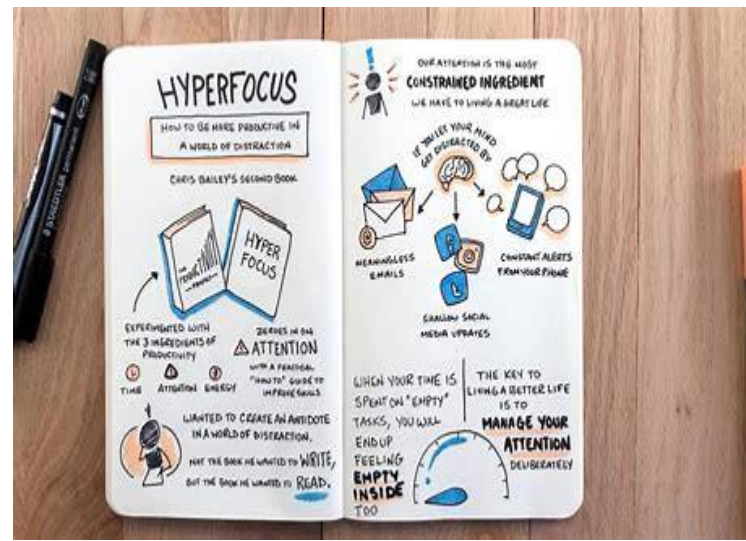 HYPERFOCUS
HOW TO BE MORE PRODUCTIVE IN
A WORLD OF DISTRACTION
CHRIS BAILEY'S SECOND BOOK
THE
PRODUCTIVITY
PROJECT
HYPER
FOCUS
EXPERIMENTED WITH
THE 3 INGREDIENTS OF
PRODUCTIVITY
TIME
ATTENTION
ENERGY
ZEROES IN ON
ATTENTION
WITH A PRACTICAL
"HOW TO" GUIDE TO
IMPROVE SKILLS
WANTED TO CREATE AN ANTIDOTE
IN A WORLD OF DISTRACTION.
NOT THE BOOK HE WANTED TO WRITE,
BUT THE BOOK HE WANTED TO READ.
OUR ATTENTION IS THE MOST
CONSTRAINED INGREDIENT
WE HAVE TO LIVING A GREAT LIFE
IF YOU LET YOUR MIND
GET DISTRACTED BY
MEANINGLESS
EMAILS
SHALLOW SOCIAL
MEDIA UPDATES
CONSTANT ALERTS
FROM YOUR PHONE
WHEN YOUR TIME IS
SPENT ON "EMPTY"
TASKS, YOU WILL
END UP
FEELING
EMPTY
INSIDE
TOO
THE KEY TO
LIVING A BETTER LIFE
IS TO
MANAGE YOUR
ATTENTION
DELIBERATELY
STAEDTLER